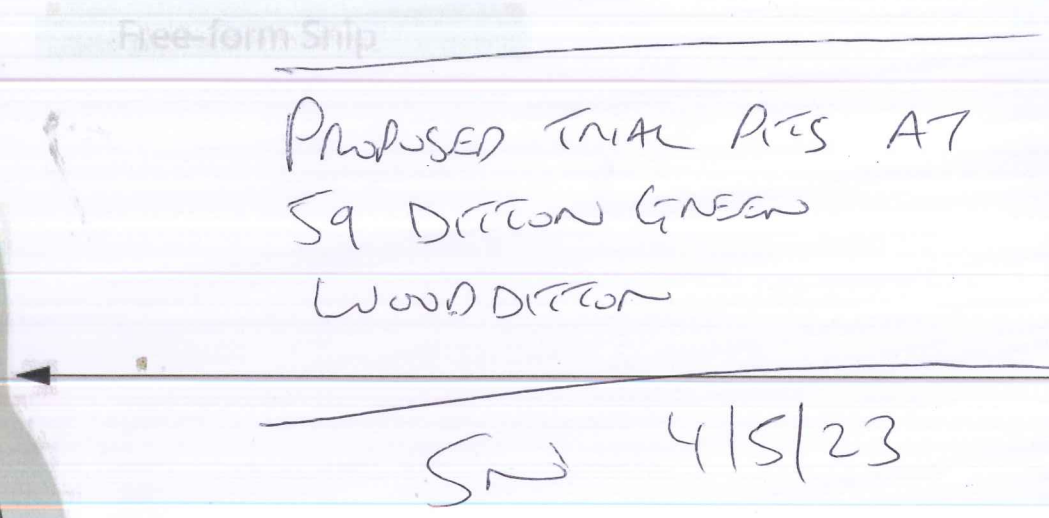 Free-form Snip
PROPOSED TRIAL PITS AT
59 DITTON GREEN
WOODDITTON
SN 4/5/23